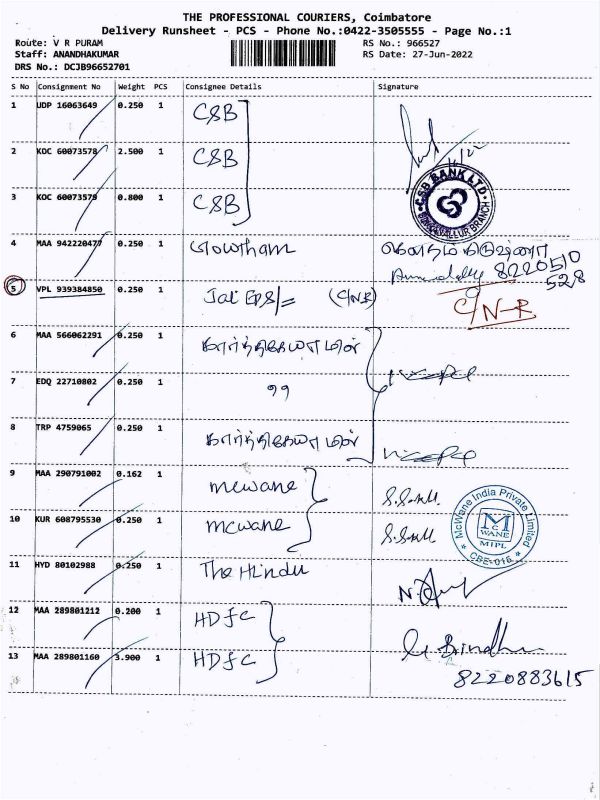 THE PROFESSIONAL COURIERS, Coimbatore
Delivery Runsheet - PCS - Phone No.:0422-3505555 - Page No.:1
Route: V R PURAM
RS No.: 966527
Staff: ANANDHAKUMAR
RS Date: 27-Jun-2022
DRS No.: DCJB96652701
S No Consignment No Weight PCS Consignee Details Signature
1 UDP 16063649 0.250 1 CSB
2 KOC 60073578 2.500 1 CSB
3 KOC 60073579 0.800 1 CSB
CSB BANK LTD. BRANCH
4 MAA 942220477 0.250 1 Gowtham
8220510
528
5 VPL 939384850 0.250 1 (C/N-R) C/N-R
6 MAA 566062291 0.250 1
7 EDQ 22710802 0.250 1 "
8 TRP 4759065 0.250 1
9 MAA 290791002 0.162 1 mcwane
10 KUR 608795530 0.250 1 mcwane
McWane India Private Limited
MCWANE
MIPL
CBE-016
11 HYD 80102988 0.250 1 The Hindu
12 MAA 289801212 0.200 1 HDFC
13 MAA 289801160 3.900 1 HDFC
8220883615